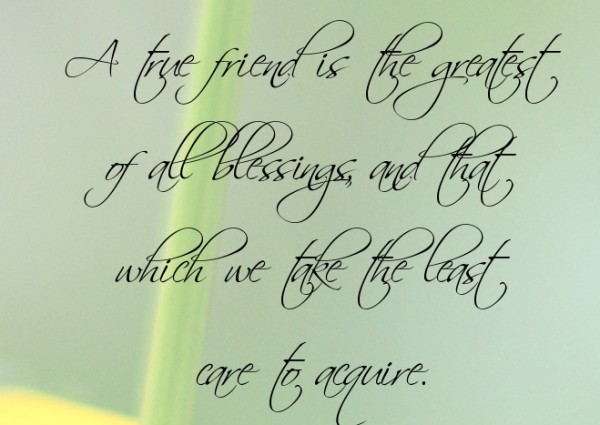 A true friend is the greatest
of all blessings, and that
which we take the least
care to acquire.